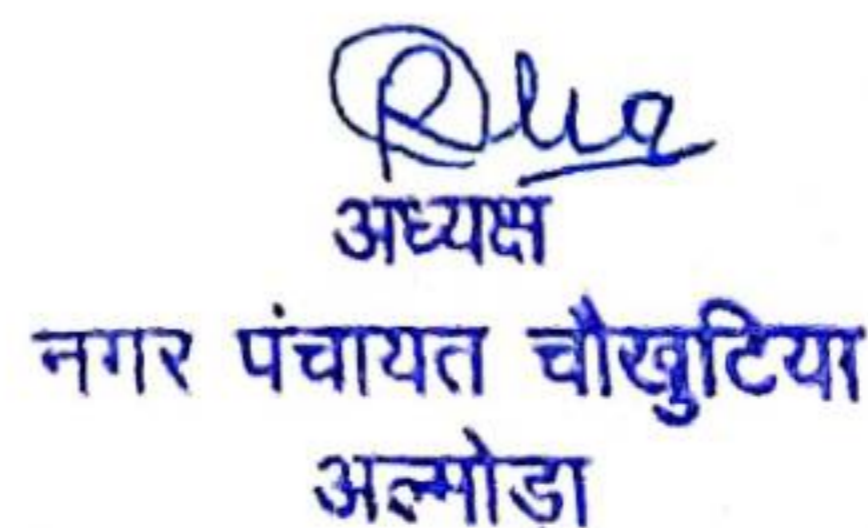 अध्यक्ष
नगर पंचायत चौखुटिया
अल्मोडा